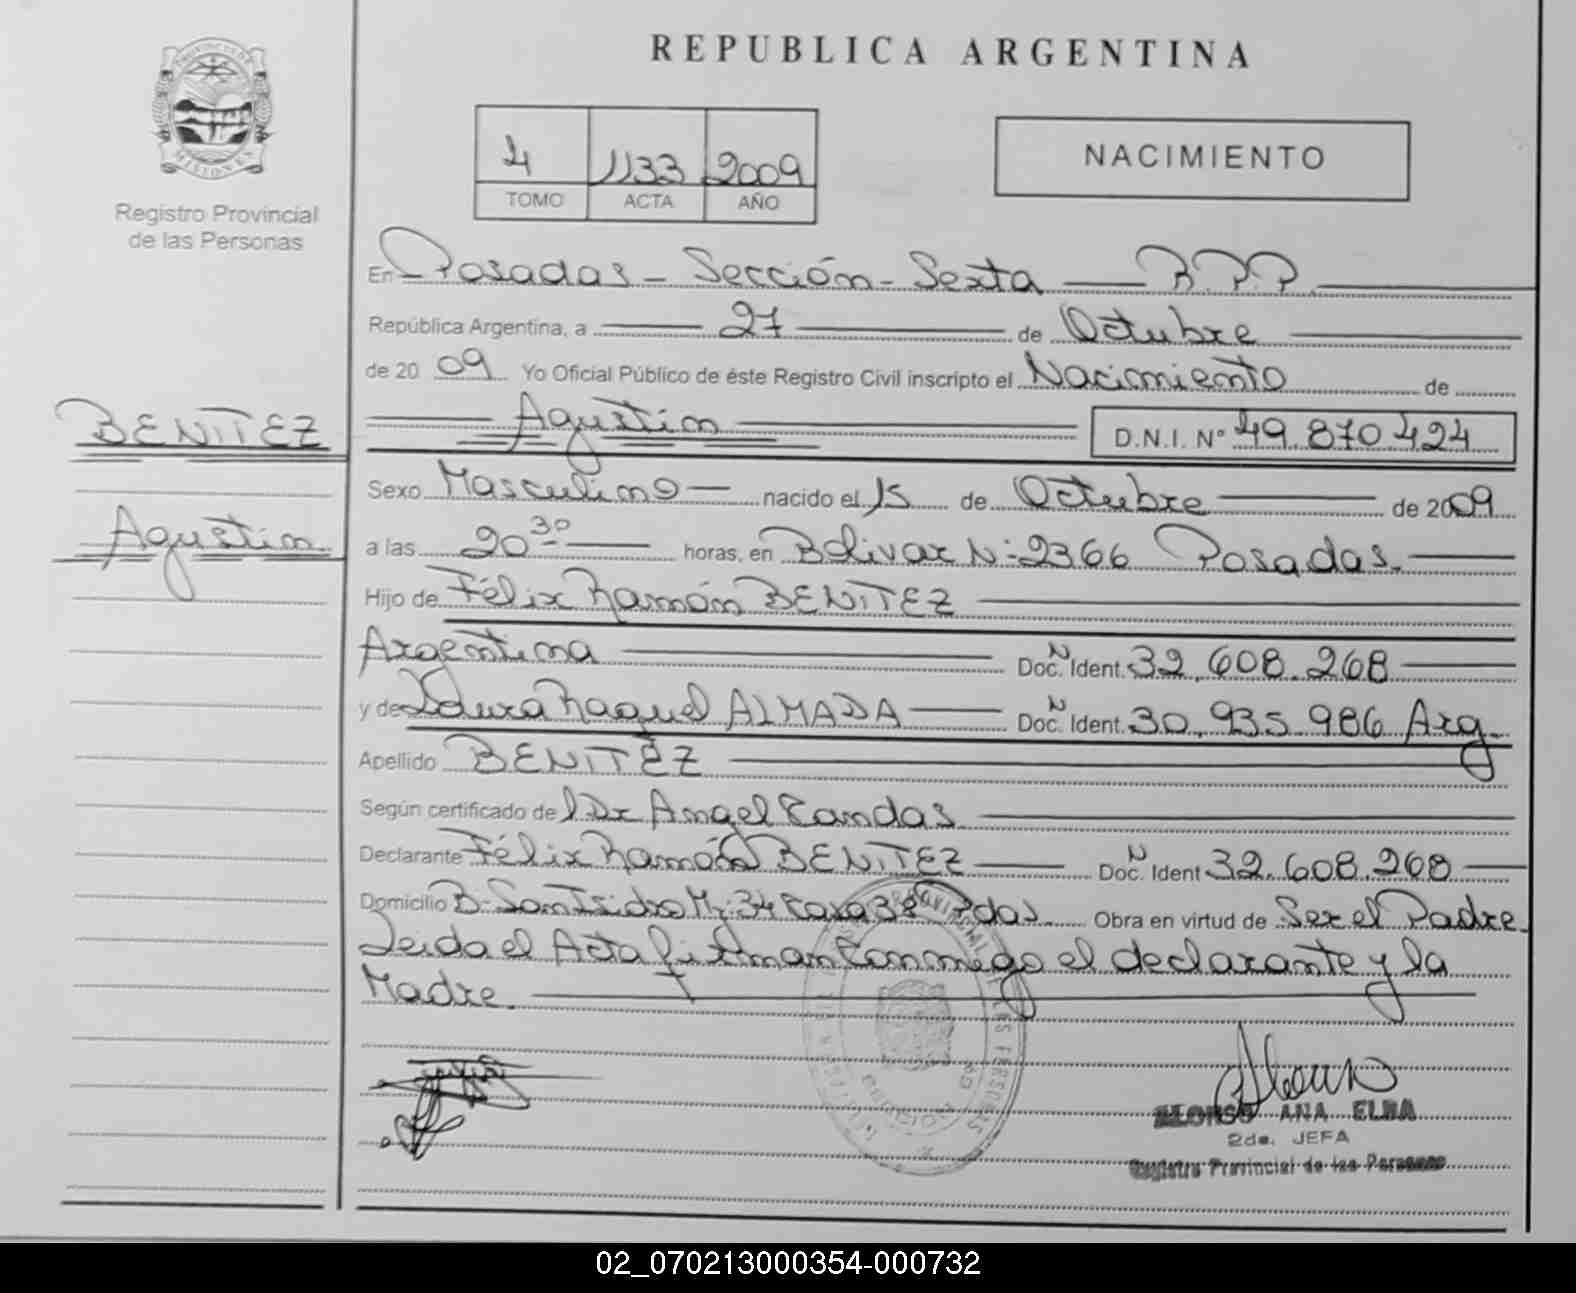 REPUBLICA ARGENTINA
PROVINCIA DE
MISIONES
Registro Provincial
de las Personas
4 1133 2009
TOMO ACTA AÑO
NACIMIENTO
En Posadas - Sección - Sexta — R.P.P.
República Argentina, a 27 de Octubre
de 2009 Yo Oficial Público de éste Registro Civil inscripto el Nacimiento de
BENITEZ
Agustin
Agustin D.N.I. Nº 49.870.424
Sexo Masculino — nacido el 15 de Octubre de 2009
a las 20 30 horas, en Bolivar Nº 2366 Posadas.
Hijo de Félix Ramón BENITEZ
Argentina Doc. Ident. N 32.608.268
y de Laura Raquel ALMADA Doc. Ident. N 30.935.986 Arg.
Apellido BENITEZ
Según certificado de l Dr Angel Candas
Declarante Félix Ramón BENITEZ Doc. Ident N 32.608.268
Domicilio B- San Isidro Mz: 34 Casa 38 Pdas. Obra en virtud de Ser el Padre.
Leida el Acta firman conmigo el declarante y la
Madre.
ALONSO ANA ELBA
2da. JEFA
Registro Provincial de las Personas
02_070213000354-000732